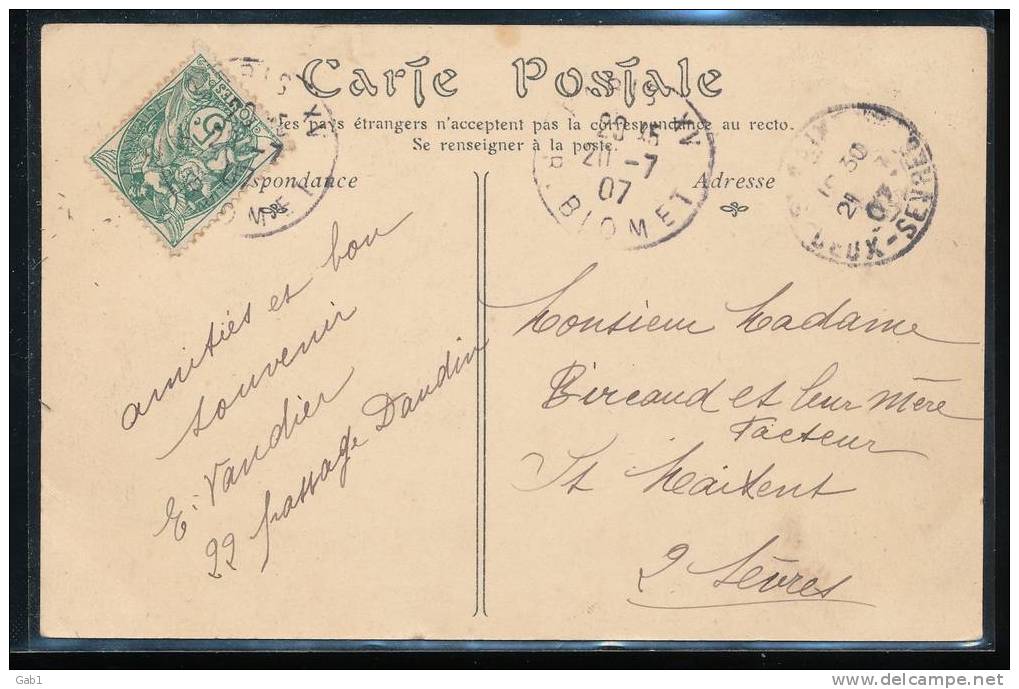 Carte Postale
pays étrangers n'acceptent pas la correspondance au recto.
Se renseigner à la poste.
spondance
Adresse
20 -7
07
BLOMET
21
07
DEUX-SEVRES
amitiés et bon
souvenir
E. Vandier
22 passage Dandin
Monsieur Madame
Bircaud et leur mère
Facteur
St Maixent
2 Sèvres
Gab1
www.delcampe.net